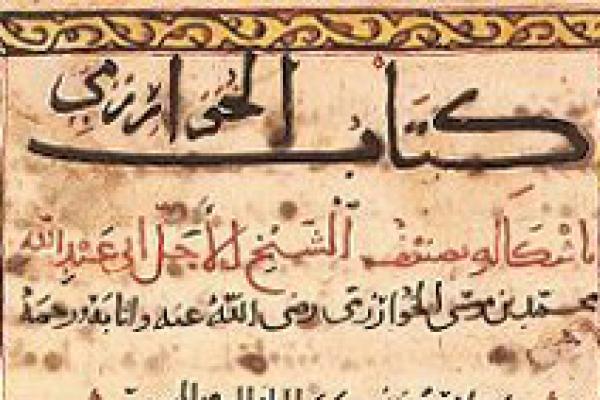 كتاب الخوارزمي
باشكاله تصنيف الشيخ الأجل ابي عبد الله
محمد بن موسى الخوارزمي رضي الله عنه واثابه رحمة